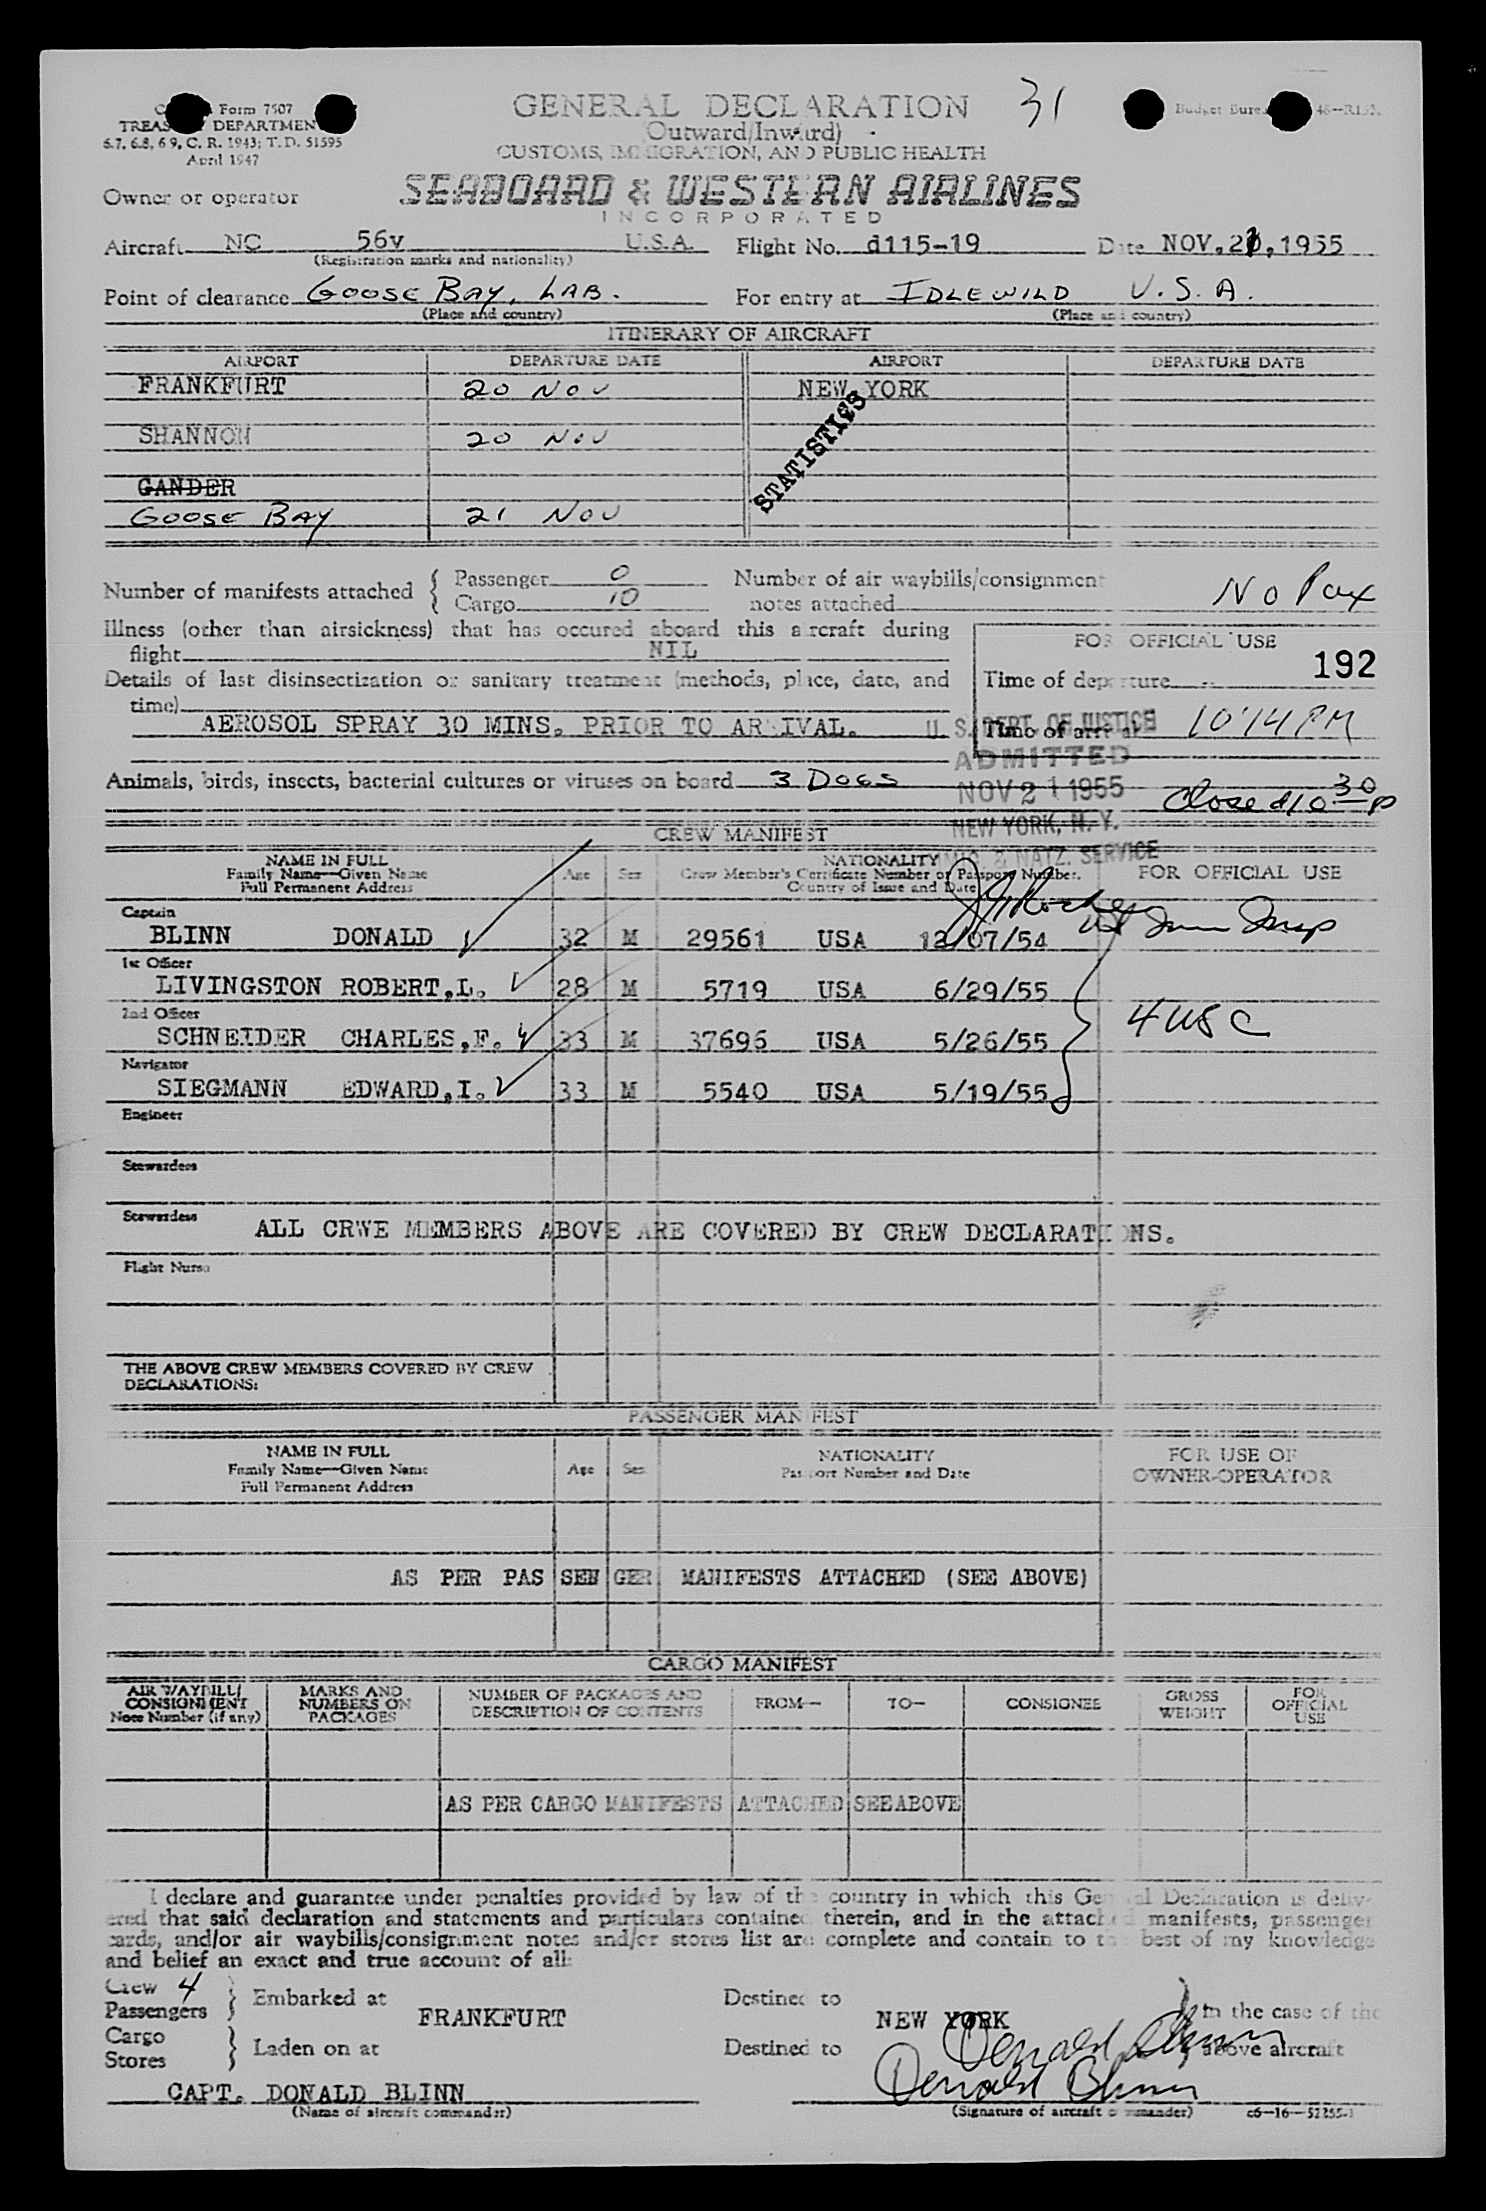 GENERAL DECLARATION 31
Form 7507
TREAS DEPARTMEN
6.7, 6.8, 6.9, C. R. 1943; T. D. 51595
April 1947
Outward/Inward)
CUSTOMS, IMMIGRATION, AND PUBLIC HEALTH
Owner or operator SEABOARD & WESTERN AIRLINES
INCORPORATED
Aircraft NC 56v U.S.A. Flight No. d115-19 Date NOV. 21, 1955
(Registration marks and nationality)
Point of clearance GOOSE BAY, LAB. For entry at IDLEWILD U.S.A.
(Place and country) (Place and country)
ITINERARY OF AIRCRAFT
AIRPORT DEPARTURE DATE AIRPORT DEPARTURE DATE
FRANKFURT 20 NOV NEW YORK
STATISTICS
SHANNON 20 NOV
GANDER
GOOSE BAY 21 NOV
Number of manifests attached { Passenger 0 Number of air waybills/consignment No Pax
Cargo 10 notes attached
Illness (other than airsickness) that has occured aboard this aircraft during
flight NIL
FOR OFFICIAL USE
192
Details of last disinsectization or sanitary treatment (methods, place, date, and
time)
Time of departure
AEROSOL SPRAY 30 MINS. PRIOR TO ARRIVAL.
Time of arrival 10 14 PM
U. S. DEPT. OF JUSTICE
ADMITTED
NOV 21 1955
NEW YORK, N. Y.
IMMIG. & NATZ. SERVICE
Animals, birds, insects, bacterial cultures or viruses on board 3 DOGS
Closed 10 30 P
CREW MANIFEST
NAME IN FULL
Family Name—Given Name
Full Permanent Address
Age Sex
NATIONALITY
Crew Member's Certificate Number or Passport Number.
Country of Issue and Date
FOR OFFICIAL USE
Captain
BLINN DONALD 32 M 29561 USA 12/07/54
1st Officer
LIVINGSTON ROBERT,L. 28 M 5719 USA 6/29/55
2nd Officer
SCHNEIDER CHARLES,F. 33 M 37696 USA 5/26/55 4 USC
Navigator
SIEGMANN EDWARD,I. 33 M 5540 USA 5/19/55
Engineer
Stewardess
Stewardess
ALL CRWE MEMBERS ABOVE ARE COVERED BY CREW DECLARATIONS.
Flight Nurse
THE ABOVE CREW MEMBERS COVERED BY CREW
DECLARATIONS:
PASSENGER MANIFEST
NAME IN FULL
Family Name—Given Name
Full Permanent Address
Age Sex
NATIONALITY
Passport Number and Date
FOR USE OF
OWNER-OPERATOR
AS PER PAS SEN GER MANIFESTS ATTACHED (SEE ABOVE)
CARGO MANIFEST
AIR WAYBILL/
CONSIGNMENT
Note Number (if any)
MARKS AND
NUMBERS ON
PACKAGES
NUMBER OF PACKAGES AND
DESCRIPTION OF CONTENTS
FROM—
TO—
CONSIGNEE
GROSS
WEIGHT
FOR
OFFICIAL
USE
AS PER CARGO MANIFESTS ATTACHED SEEABOVE
I declare and guarantee under penalties provided by law of the country in which this General Declaration is deliv-
ered that said declaration and statements and particulars contained therein, and in the attached manifests, passenger
cards, and/or air waybills/consignment notes and/or stores list are complete and contain to the best of my knowledge
and belief an exact and true account of all:
Crew 4
Passengers } Embarked at FRANKFURT Destined to NEW YORK } In the case of the
Cargo
Stores } Laden on at Destined to above aircraft
Donald Blinn
CAPT. DONALD BLINN Donald Blinn
(Name of aircraft commander) (Signature of aircraft commander) c6—16—52255-1